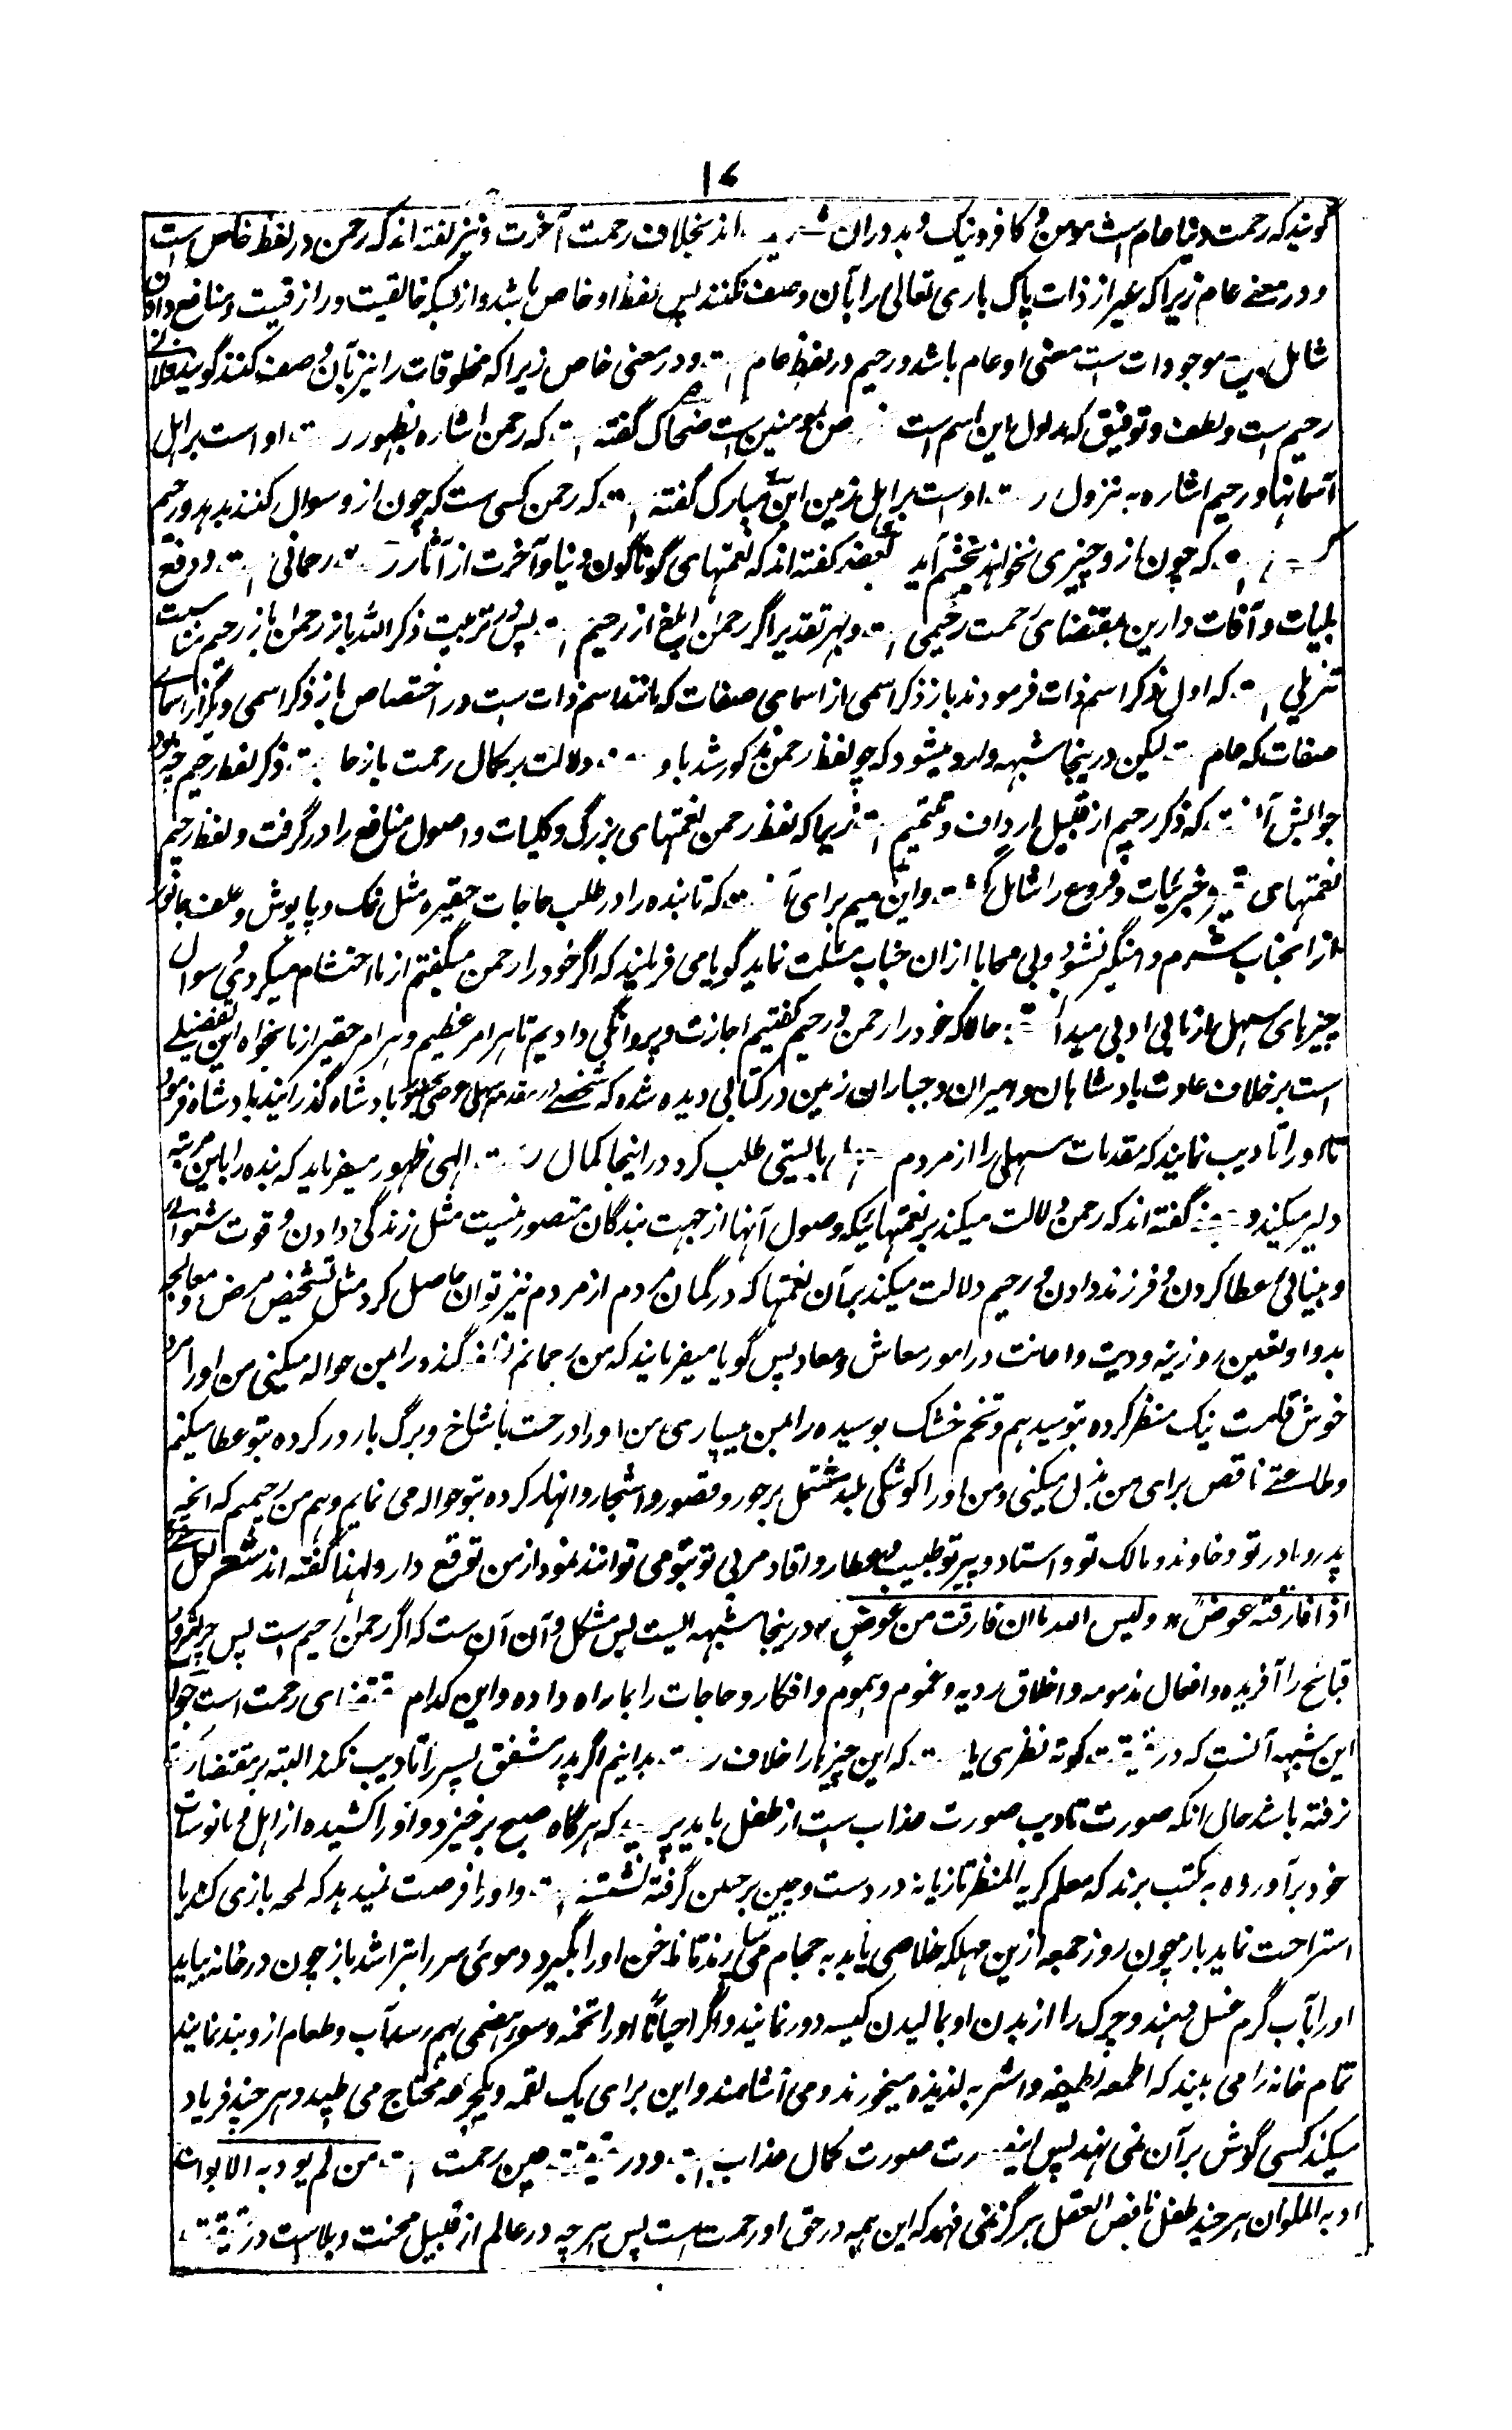 ۱۷
گویند که رحمت دنیا عام است مومن و کافر و نیک و بد دران شریک اند بخلاف رحمت آخرت و نیز گفته اند که رحمن در لفظ خاص است
و در معنے عام زیرا که غیر از ذات پاک باری تعالی را بآن وصف نکنند پس لفظ او خاص باشد و از بسکه خالقیت و رازقیت و منافع دادن
شامل جمیع موجودات ست معنی او عام باشد و رحیم در لفظ عام است و در معنی خاص زیرا که مخلوقات را نیز بآن وصف کنند گویند فلانے
رحیم است و لطف و توفیق که مدلول این اسم است خاص بمومنین ست ضحاک گفته است که رحمن اشاره بظهور رحمت او است بر اهل
آسمانها و رحیم اشاره به نزول رحمت او ست بر اهل زمین ابن مبارک گفته است که رحمن کسی ست که چون ازو سوال کنند بدهد و رحیم
کسی است که چون ازو چیزی نخواهند بخشم آید بعضے گفته اند که نعمتهای گوناگون دنیا و آخرت از آثار رحمت رحمانی است و دفع
بلیات و آفات دارین مقتضای رحمت رحیمی است و بهر تقدیر اگر رحمن ابلغ از رحیم است پس در ترتیب ذکر الله باز رحمن باز رحیم مناسبت
تنزیلی است که اول ذکر اسم ذات فرمودند باز ذکر اسمی از اسمای صفات که مانند اسم ذات ست در اختصاص باز ذکر اسمی دیگر از اسمای
صفات که عام است لیکن درینجا شبهه وارد میشود که چو لفظ رحمن مذکور شد و دلالت بر کمال رحمت باز حاجت ذکر لفظ رحیم چه بود
جوابش آنست که ذکر رحیم از قبیل ارداف و تتمیم است زیرا که لفظ رحمن نعمتهای بزرگ و کلیات و اصول منافع را در گرفت و لفظ رحیم
نعمتهای و جزئیات و فروع را شامل گشت و این میم برای آنست که تا بنده را در طلب حاجات حقیره مثل نمک و پاپوش و علف جانور
از انجناب شرم دامنگیر نشود و بی محابا ازان جناب مسئلت نماید گویا می فرمایند که اگر خود را رحمن میگفتم از ما احتشام میکردی و سوال
چیزهای سهل از ما بی ادبی میدانستی حالا که خود را رحمن و رحیم گفتیم اجازت و پروانگی دادیم تا هر امر عظیم و هر امر حقیر از ما بخواه این تفضیلے
است بر خلاف عادت بادشاهان و امیران و جباران زمین در کتابی دیده شده که شخصے در مقدمه سهلی عرضی بحضور بادشاه گذرانید بادشاه فرمود
تا او را تادیب نمایند که مقدمات سهلی را از مردم بایستی طلب کرد در اینجا کمال رحمت الهی ظهور میفرماید که بنده را باین مرتبه
دلیر میکند و بعضے گفته اند که رحمن دلالت میکند بر نعمتهائیکه وصول آنها از جهت بندگان متصور نیست مثل زندگی دادن و قوت شنوائی
و بینائی عطا کردن و فرزند دادن و رحیم دلالت میکند بر آن نعمتها که در گمان مردم از مردم نیز توان حاصل کرد مثل تشخیص مرض و معالجه
بدوا و تعین روزینه و دیت و اعانت در امور معاش و معاد پس گویا میفرمایند که من رحمانم نطفه گنده را بمن حواله میکنی من او را مرد
خوش قامت نیک منظر کرده بتو میدهم و تخم خشک بوسیده را بمن میسپاری من او را درخت با شاخ و برگ بارور کرده بتو عطا میکنم
و طاعتے ناقص برای من بذل میکنی و من او را کوشکی بلند مشتمل بر حور و قصور و اشجار و انهار کرده بتو حواله می نمایم و هم من رحیمم که انچه
پدر و مادر تو و خاوند و مالک تو و استاد و پیر تو طبیب و عطار و اقاد مربی تو بتو می توانند نمود از من توقع دار و لهذا گفته اند شعر لکل شئ
اذا فارقته عوض * ولیس لله ان فارقت من عوض * درینجا شبهه ایست پس مشکل و آن آن ست که اگر رحمن رحیم است پس چرا شرور و
قبائح را آفریده و افعال مذمومه و اخلاق ردیه و غموم و هموم و افکار و حاجات را بما راه داده و این کدام مقتضای رحمت است جواب
این شبهه آنست که در حقیقت کوته نظری ما است که این چیزها را خلاف رحمت بدانیم اگر پدر مشفق پسر را تادیب نکند البته بر مقتضای رحمت
نرفته باشد حال انکه صورت تادیب صورت عذاب ست از طفل باید پرسید که هر گاه صبح برخیزد و او را کشیده از اهل و مانوسات
خود برآورده به مکتب برند که معلم کریه المنظر تازیانه در دست و چین بر جبین گرفته نشسته است و او را فرصت نمیدهد که لمحه بازی کند یا
استراحت نماید باز چون روز جمعه ازین مهلکه خلاصی یابد به حجام می سپارند تا ناخن او را بگیرد و موئی سر را بتراشد باز چون در خانه بیاید
او را بآب گرم غسل دهند و چرک را از بدن او بمالیدن کیسه دور نمایند و اگر احیاناً او را تخمه و سوء هضمی بهم رسد آب و طعام ازو بند نمایند
تمام خانه را می بیند که اطعمه لطیفه و اشربه لذیذه میخورند و می آشامند و این برای یک لقمه و یکجرعه محتاج می طپد و هر چند فریاد
میکند کسی گوش بر آن نمی نهد پس اینصورت صورت کمال عذاب است و در حقیقت عین رحمت است من لم یودبه الابوان
ادبه الملوان هر چند طفل ناقص العقل هرگز نمی فهمد که این همه در حق او رحمت است پس هر چه در عالم از قبیل محنت و بلا ست در حقیقت